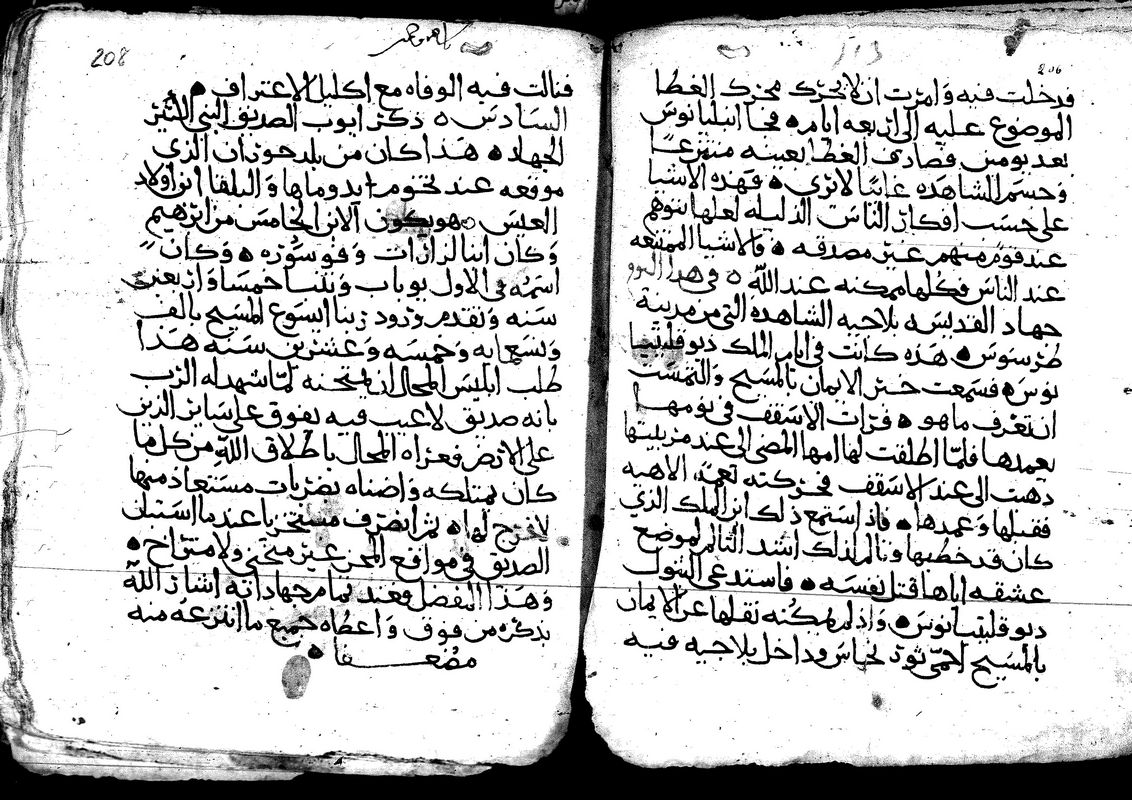 206
فدخلت فيه وامرت ان لا يحرك محرك الغطا
الموضوع عليه الى اربعه ايام ٥ فجا انبليانوس
بعد يومين فصادف الغطا بعينه منتزعًا
وجسم الشاهده غايبًا لا يرى ٥ فهذه الاشيا
على حسب افكار الناس الذليله لعلها يتوهم
عند قوم منهم غير مصدقه ٥ والاشيا الممتنعه
عند الناس فكلها ممكنه عند الله ٥ وفي هذا اليوم
جهاد القديسه بلاجيه الشاهده التي من مدينة
طرسوس ٥ هذه كانت في ايام الملك ديوقليتيا
نوس ٥ فسمعت خبر الايمان بالمسيح والتمست
ان تعرف ما هو ٥ فرات الاسقف في نومها
يعمدها فلما اطلقت لها امها المضي الى عند مربيتها
ذهبت الى عند الاسقف فحركته نعمة الالاهيه
فقبلها وعمدها ٥ فاذ استمع ذلك ابن الملك الذي
كان قد خطبها وتالم لذلك اشد التالم لموضع
عشقه اياها قتل نفسه ٥ فاستدعى البتول
ديوقليتيانوس ٥ واذ لم يمكنه نقلها عن الايمان
بالمسيح احمى ثور نحاس وداخل بلاجيه فيه
208
فنالت فيه الوفاه مع اكليل الاعتراف ٥
السادس ٥ ذكر ايوب الصديق النبي الكثير
الجهاد ٥ هذا كان من بلد حوران الذي
موقعه عند تخوم ايدوما والبلقا ابن اولاد
العيس ٥ هو يكون الابن الخامس من ابرهيم
وكان ابنا لزارات وفوسوره ٥ وكان
اسمه في الاول يوباب وتنبا خمسا وعشرين
سنه وتقدم ورود ربنا ايسوع المسيح بالف
وتسعمايه وخمسه وعشرين سنه هذا
طلب ابليس المحال ان يمتحنه لما شهد له الرب
بانه صديق لا عيب فيه يفوق على ساير الذين
على الارض فعراه المحال باطلاق الله من كل ما
كان يمتلكه واضناه بضربات مستعاذ منها
لا فرج لها ٥ ثم انصرف مستخزيا عندما استبان
الصديق في مواقع المحن غير منحني ولا متراخ ٥
وهذا المفضل فعند تمام جهاداته اشار الله
بذكره من فوق واعطاه جميع ما انتزعه منه
مضعفا ٥